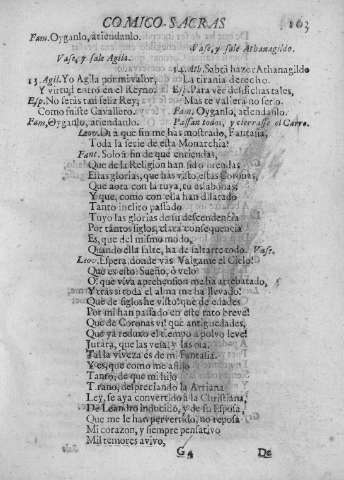 COMICO-SACRAS 103
Fam. Oyganlo, atiendanlo.
Vase, y sale Agila.
13. Agil. Yo Agila por mi valor,
Y virtud entrò en el Reyno.
Esp. No seràs tan feliz Rey,
Como fuiste Cavallero.
Fam. Oyganlo, atiendanlo.
Vase, y sale Athanagildo.
14. Ath. Sabrà hazer Athanagildo
La tirania derecho.
Esp. Para ver desdichas tales,
Mas te valiera no serlo.
Fam. Oyganlo, atiendanlo.
Passan todos, y cierrasse el Carro.
Leov. Di a que fin me has mostrado, Fantasia,
Toda la serie de esta Monarchia?
Fant. Solo à fin de que entiendas,
Que de la Religion han sido prendas
Estas glorias, que has visto, estas Coronas,
Que aora con la tuya, tu eslabonas;
Y que, como con ella han dilatado
Tanto inclito passado
Tuyo las glorias de su descendencia
Por tantos siglos, clara consequencia
Es, que del mismo modo,
Quando ella falte, ha de faltarte todo. Vase.
Leov. Espera, donde vas? Valgame el Cielo!
Que es esto? Sueño, ò velo?
O! que viva aprehension me ha arrebatado,
Y tras si toda el alma me ha llevado!
Què de siglos he visto! que de edades
Por mi han passado en este rato breve!
Què de Coronas vì! què antiguedades,
Que ya reduxo el tiempo à polvo leve!
Jurara, que las vesa, y las oìa.
Tal la viveza es de mi Fantasia.
Y es, que como me aflijo
Tanto, de que mi hijo
Tirano, despreciando la Arriana
Ley, se aya convertido à la Christiana,
De Leandro inducido, y de su Esposa,
Que me le han pervertido, no reposa
Mi corazon, y siempre pensativo
Mil temores avivo,
G4 De